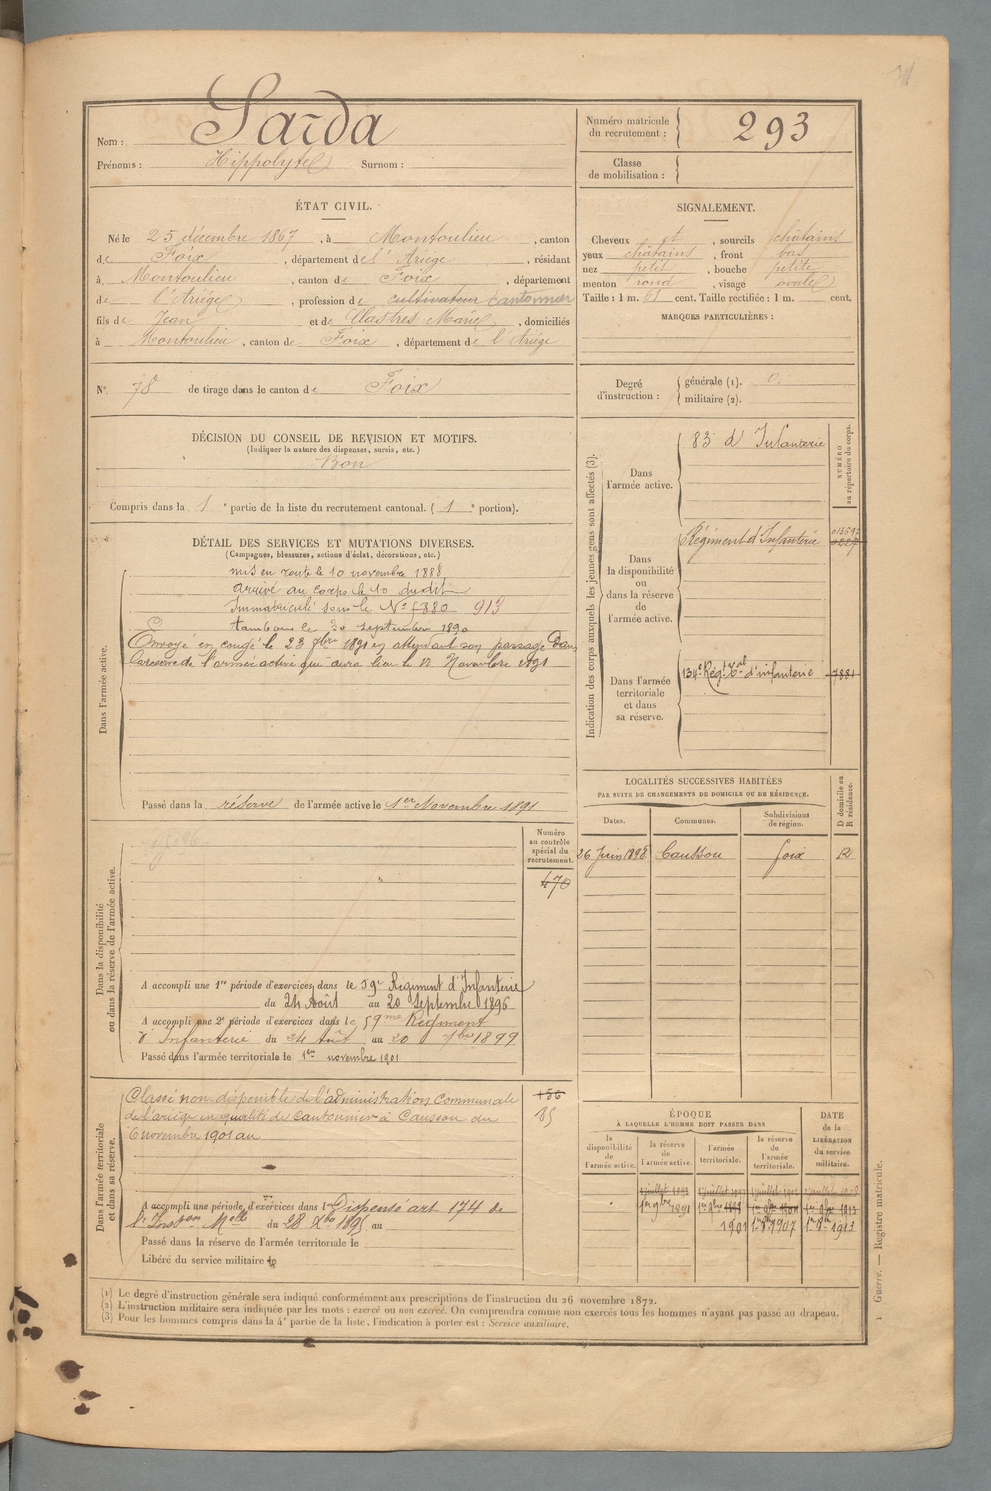 Nom : Sarda
Prénoms : Hippolyte Surnom :
Numéro matricule du recrutement : 293
Classe de mobilisation :
ÉTAT CIVIL.
Né le 25 décembre 1867, à Montoulieu, canton
de Foix, département de l'Ariège, résidant
à Montoulieu, canton de Foix, département
de l'Ariège, profession de cultivateur cantonnier
fils de Jean et de Clastres Marie, domiciliés
à Montoulieu, canton de Foix, département de l'Ariège
N° 78 de tirage dans le canton de Foix
SIGNALEMENT.
Cheveux et, sourcils châtains
yeux châtains, front bas
nez petit, bouche petite
menton rond, visage ovale
Taille : 1 m. 61 cent. Taille rectifiée : 1 m. cent.
MARQUES PARTICULIÈRES :
Degré d'instruction : générale (1). 0.
militaire (2).
DÉCISION DU CONSEIL DE REVISION ET MOTIFS.
(Indiquer la nature des dispenses, sursis, etc.)
Bon
Compris dans la 1e partie de la liste du recrutement cantonal. (1e portion).
DÉTAIL DES SERVICES ET MUTATIONS DIVERSES.
(Campagnes, blessures, actions d'éclat, décorations, etc.)
Dans l'armée active.
mis en route le 10 novembre 1888
arrivé au corps le 10 dudit
Immatriculé sous le N° 913
tambour le 20 septembre 1890
Envoyé en congé le 23 7bre 1891 en attendant son passage dans
la réserve de l'armée active qui aura lieu le 1er Novembre 1891
Passé dans la réserve de l'armée active le 1er Novembre 1891
Indication des corps auxquels les jeunes gens sont affectés (3).
NUMÉRO au répertoire du corps.
Dans l'armée active.
83e d'Infanterie
Dans la disponibilité ou dans la réserve de l'armée active.
Régiment d'Infanterie
Dans l'armée territoriale et dans sa réserve.
134e Régt Tal d'infanterie 7881
LOCALITÉS SUCCESSIVES HABITÉES
PAR SUITE DE CHANGEMENTS DE DOMICILE OU DE RÉSIDENCE.
Dates. Communes. Subdivisions de région. D domicile ou R résidence.
26 Juin 1898 Caussou foix R
Dans la disponibilité ou dans la réserve de l'armée active.
Numéro au contrôle spécial du recrutement.
470
A accompli une 1re période d'exercices dans le 59e Régiment d'Infanterie
du 24 Août au 20 Septembre 1896
A accompli une 2e période d'exercices dans le 59me Régiment
d'Infanterie du 24 août au 20 7bre 1899
Passé dans l'armée territoriale le 1er novembre 1901
Dans l'armée territoriale et dans sa réserve.
Classé non-disponible de l'administration Communale
de l'ariège en qualité de Cantonnier à Caussou du
6 novembre 1901 au
A accompli une période d'exercices dans le Dispensé art 174 de
l'Inston Melle du 28 Xbre 1895 au
Passé dans la réserve de l'armée territoriale le
Libéré du service militaire le
ÉPOQUE
À LAQUELLE L'HOMME DOIT PASSER DANS
la disponibilité de l'armée active.
la réserve de l'armée active.
l'armée territoriale.
la réserve de l'armée territoriale.
DATE de la LIBÉRATION du service militaire.
1er 9bre 1891
1901 1er 9bre 1907 1er 9bre 1913
(1) Le degré d'instruction générale sera indiqué conformément aux prescriptions de l'instruction du 26 novembre 1872.
(2) L'instruction militaire sera indiquée par les mots : exercé ou non exercé. On comprendra comme non exercés tous les hommes n'ayant pas passé au drapeau.
(3) Pour les hommes compris dans la 4e partie de la liste, l'indication à porter est : Service auxiliaire.
Guerre. — Registre matricule.